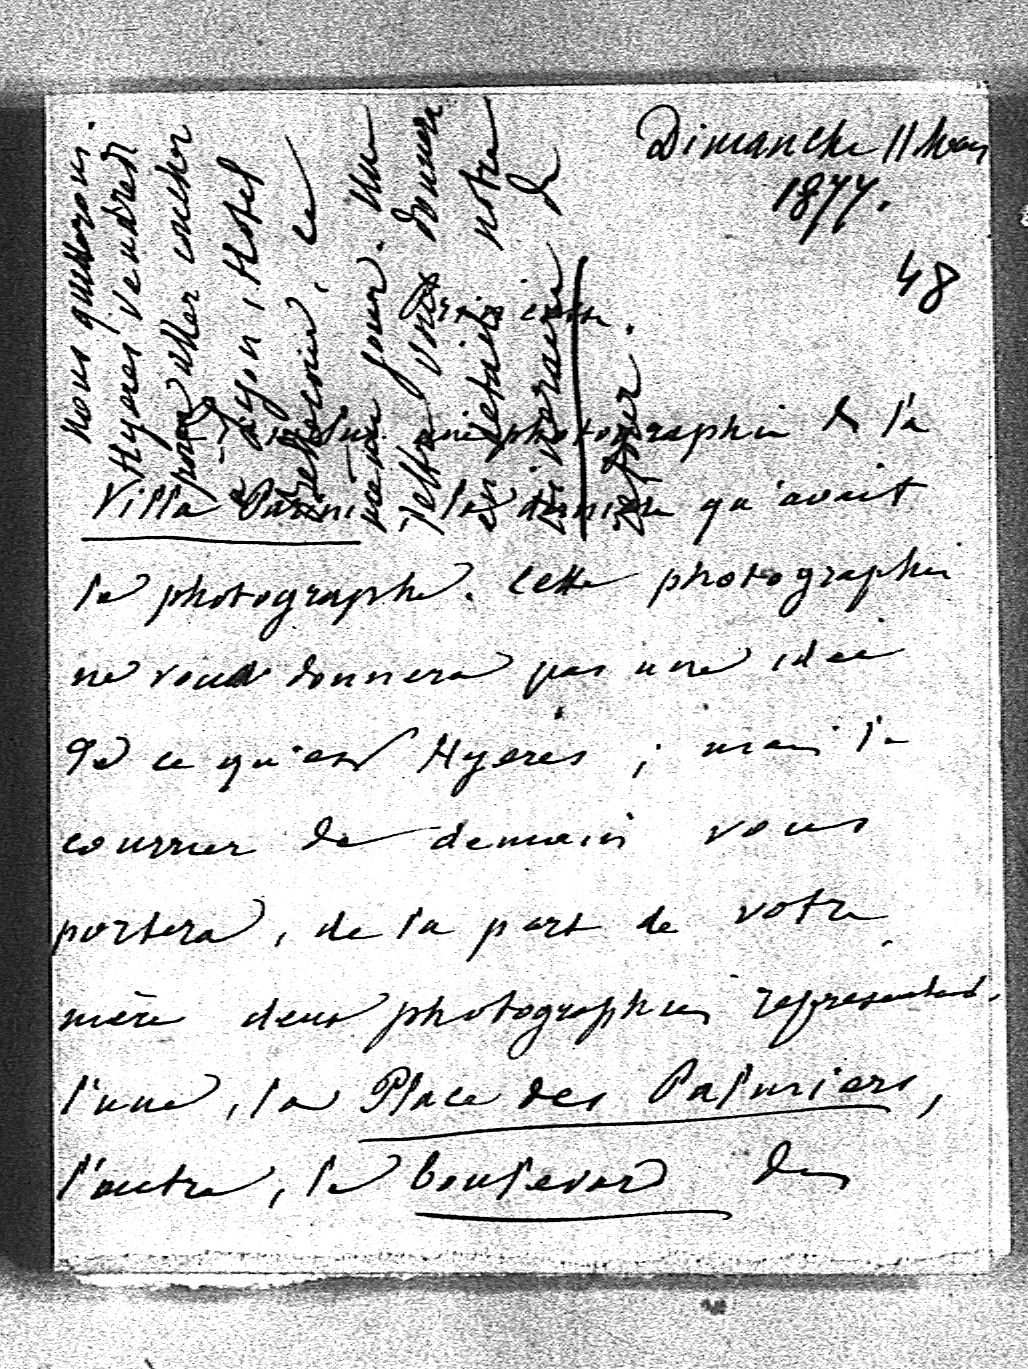 Dimanche 11 Mars
1877.
48
Princesse.
une photographie de la
Villa la derniere qu'avait
le photographe. Cette photographie
ne vous donnera pas une idée
de ce qu'est Hyeres ; mais le
courrier de demain vous
portera, de la part de votre
mère deux photographies representant
l'une, la Place des Palmiers,
l'autre, le boulevard des
nous quitterons
Hyeres Vendredi
pour aller coucher
Lyon, Hotel
ce
meme jour. Une
lettre vous donnera
en details notre
itineraire de
retour.